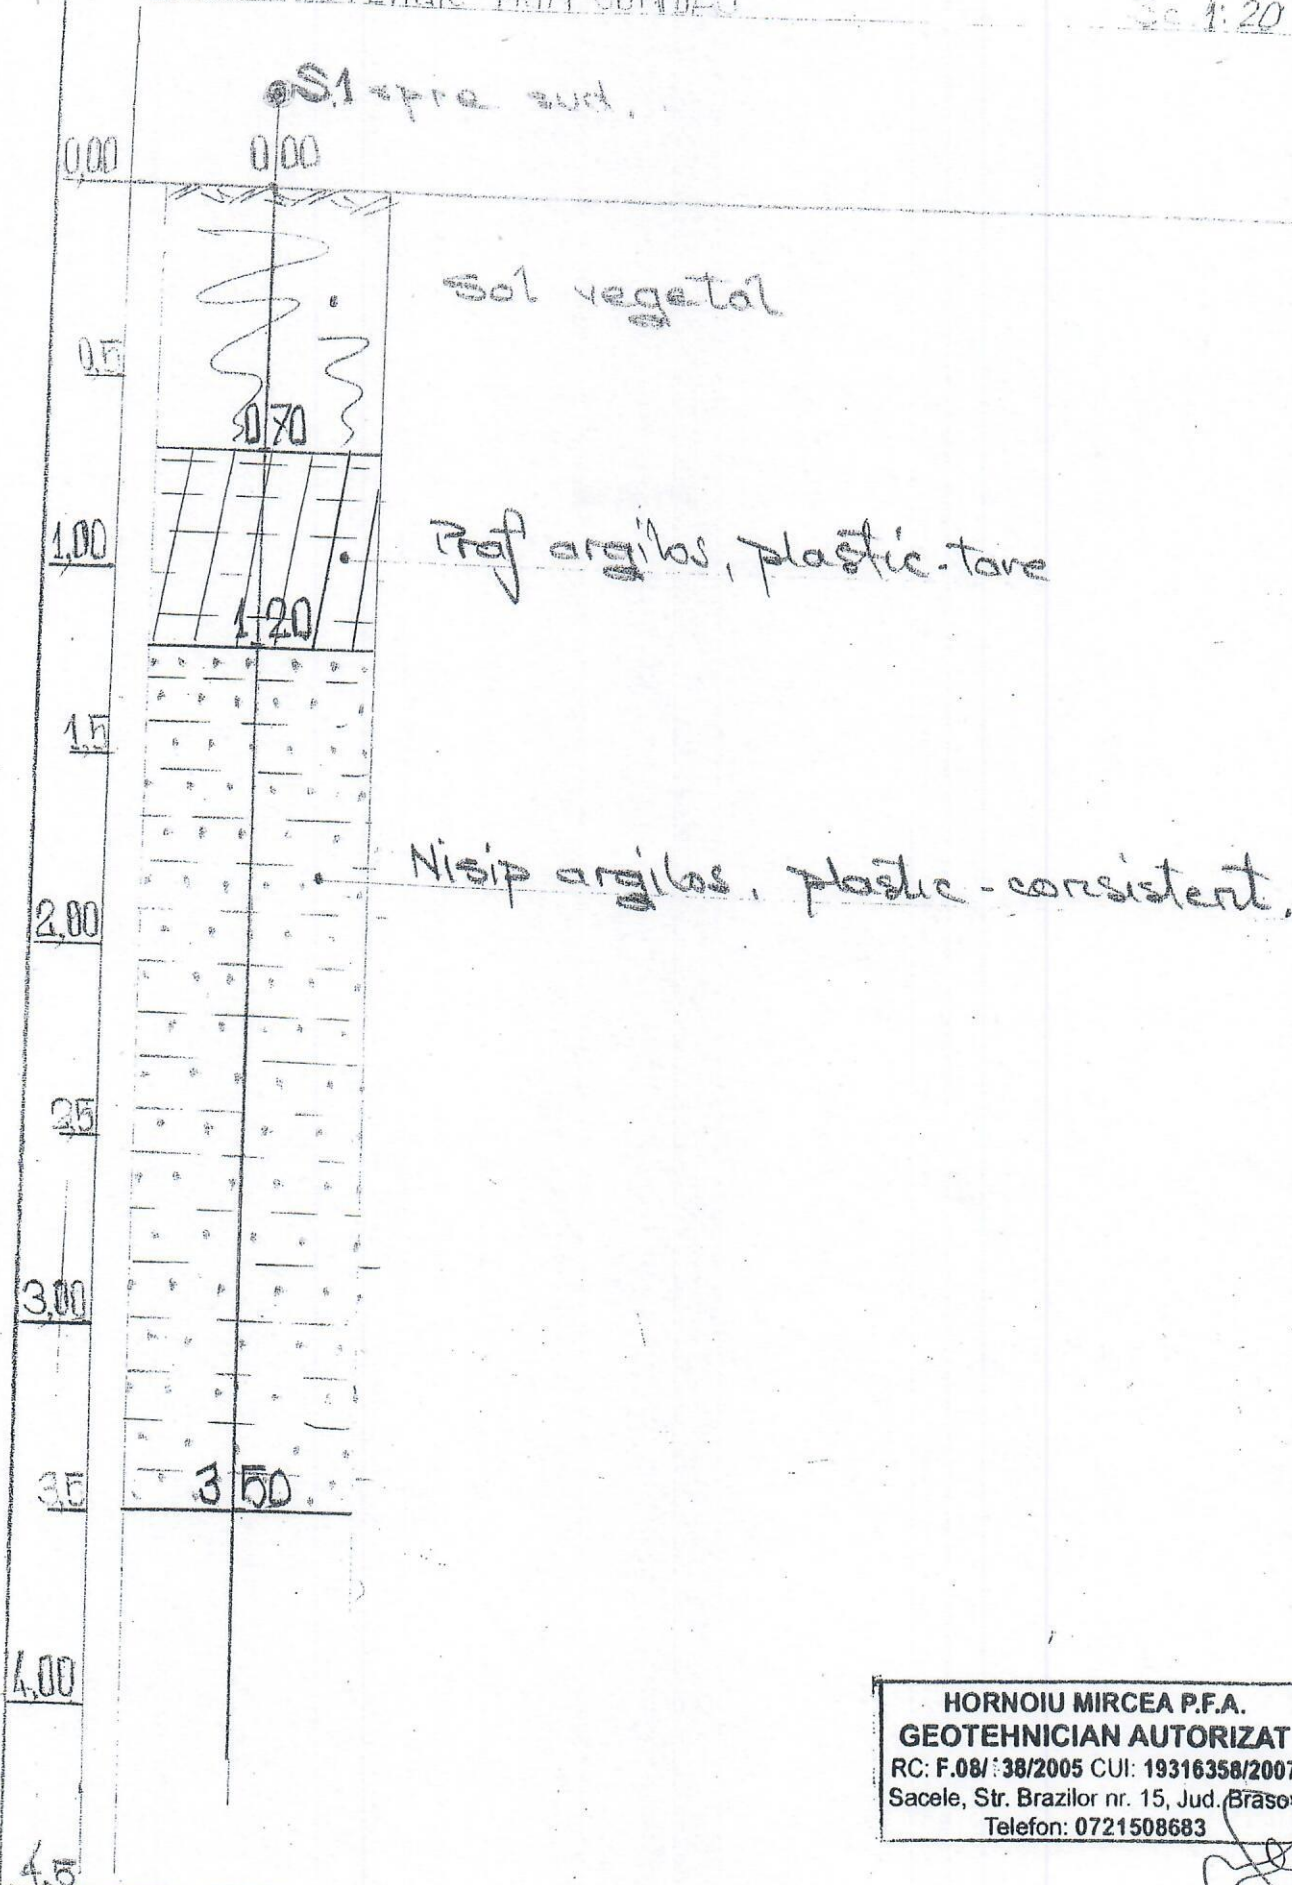 prin sondaj Sc. 1:20
S.1 spre sud.
0,00 0,00
Sol vegetal
0,5
0,70
1,00
Praf argilos, plastic-tare
1,20
1,5
Nisip argilos, plastic-consistent.
2,00
2,5
3,00
3,5
3,50
4,00
4,5
HORNOIU MIRCEA P.F.A.
GEOTEHNICIAN AUTORIZAT
RC: F.08/ 38/2005 CUI: 19316358/2007
Sacele, Str. Brazilor nr. 15, Jud. Brasov
Telefon: 0721508683